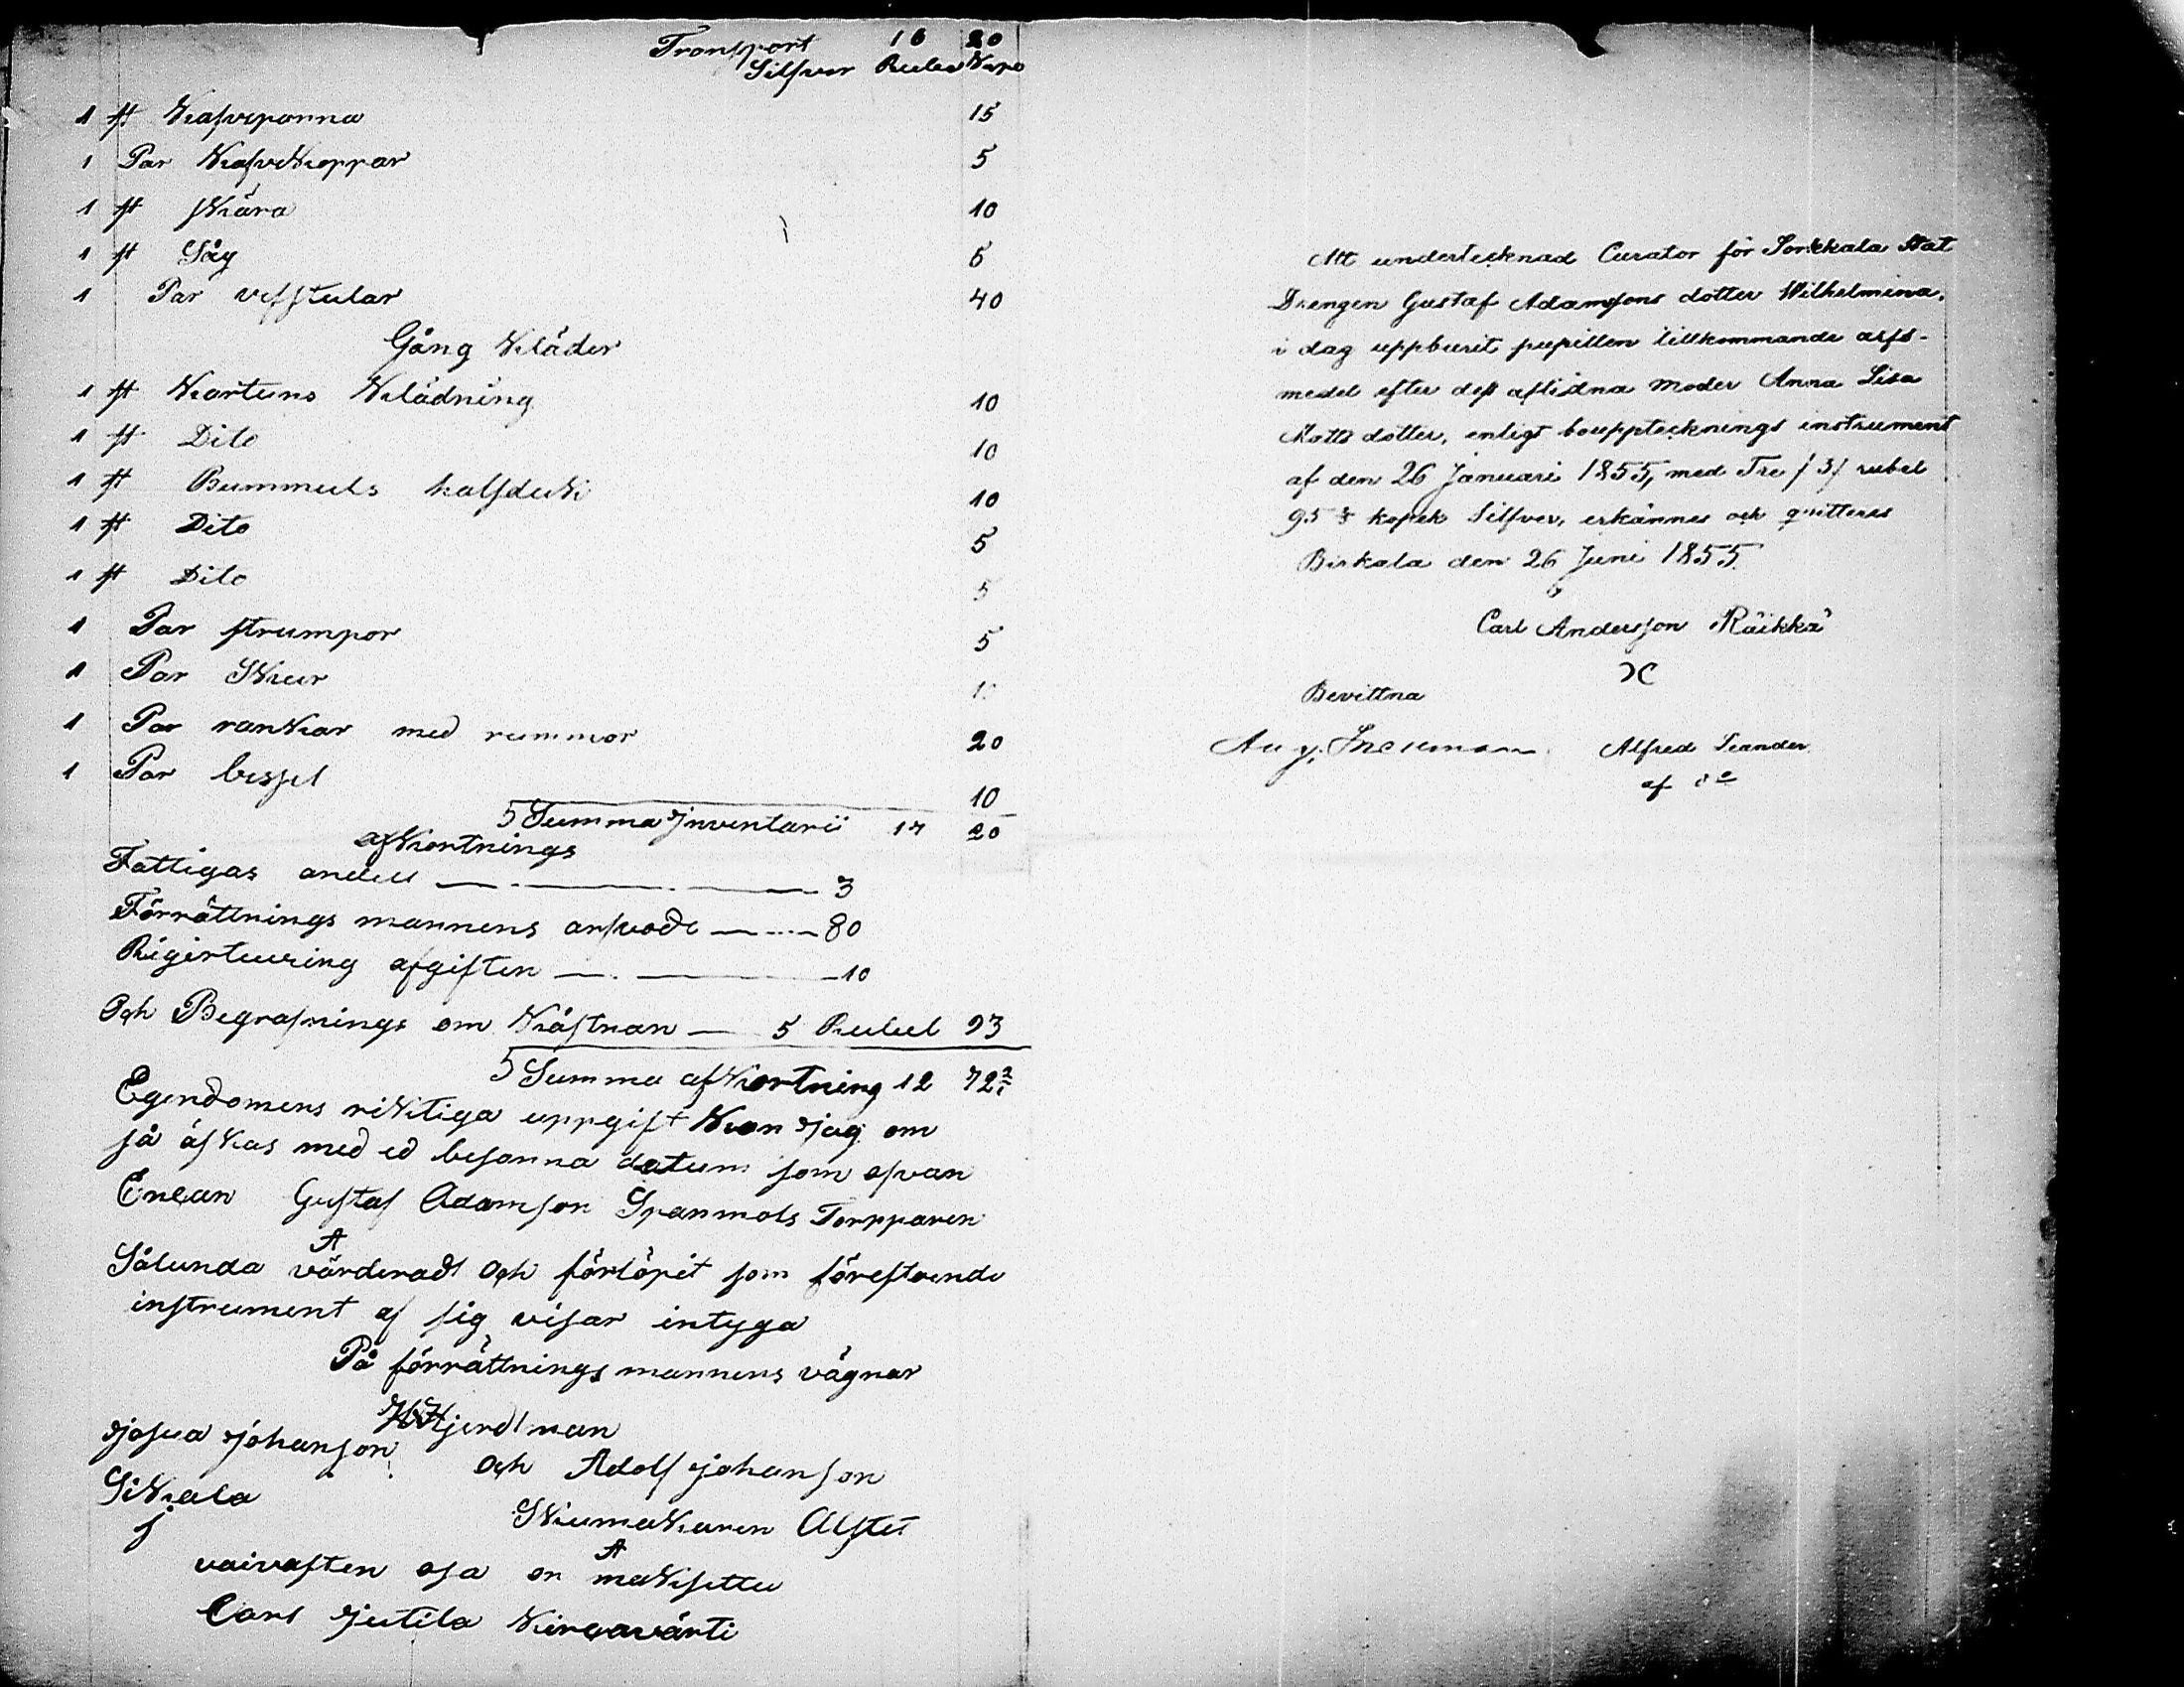 Transport 16 20
Silfver Rubel Kopo
1 st Kafvepanna 15
1 Par KafveKoppar 5
1 st sKära 10
1 st Såg 5
1 Par vefstular 40
Gång Kläder
1 st Kartuns Klädning 10
1 st Dito 10
1 st Bummuls halsduk 10
1 st Dito 5
1 st Dito 5
1 Par strumpor 5
1 Par SKuur
1 Par rankar med rummor 20
1 Par bessel 10
Summa Inventarii 17 20
afKortnings
Fattigas andell 3
Förrättnings mannens arfvode 80
Rigisteering afgiften 10
Och Begrafnings om Kåstnan 5 Rubel 93
Summa afKortning 12 72
Egendomens riktiga uppgift Kan Jag om
så äsKas med ed besanna datum som ofvan
Enkan Gustaf Adamson Spanmols Torpparen
Sålunda värderadt Och förlöpit som förestoende
instrument af sig visar intyga
På förrättnings mannens vägnar
Hjerdtman
Josua Johanson Och Adolf Johanson
SiKala SKumakaren Alstet
vaivasten osa on maKsettu
Carl Jutila Kircavärti
Att undertecknad Curator för Sorkkala Stat
Drengen Gustaf Adamsons dotter Wilhelmina,
i dag uppburit pupillen tillkommande arfs-
medel efter dess aflidna moder Anna Lisa
Matts dotter, enligt bouppteknings instrument
af den 26 Januari 1855, med Tre /3/ rubel
95 kopek Silfver, erkännes och quitteras
Birkala den 26 Juni 1855.
Carl Andersson Räikkä
Bevittna
Aug. Alfred Leander
af do